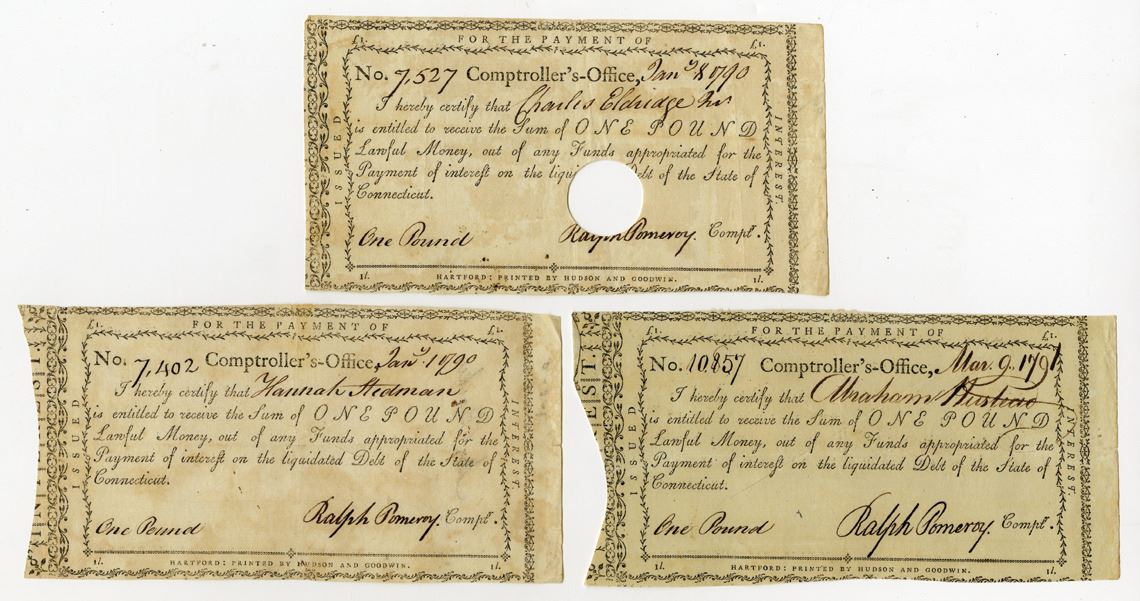 FOR THE PAYMENT OF
£1.
£1.
No. 7,527 Comptroller's-Office, Jany 8 1790
I hereby certify that Charles Eldridge Jur
is entitled to receive the Sum of ONE POUND
Lawful Money, out of any Funds appropriated for the
Payment of interest on the liqui Debt of the State of
Connecticut.
One Pound Ralph Pomeroy. Comptr.
1l. HARTFORD: PRINTED BY HUDSON AND GOODWIN. 1l.
ISSUED
INTEREST.
£1. FOR THE PAYMENT OF £1.
No. 7,402 Comptroller's-Office, Jany 1 1790
I hereby certify that Hannah Stedman
is entitled to receive the Sum of ONE POUND
Lawful Money, out of any Funds appropriated for the
Payment of interest on the liquidated Debt of the State of
Connecticut.
One Pound Ralph Pomeroy. Comptr.
1l. HARTFORD: PRINTED BY HUDSON AND GOODWIN. 1l.
ISSUED
INTEREST.
£1. FOR THE PAYMENT OF £1.
No. 10857 Comptroller's-Office, Mar. 9. 1791
I hereby certify that Abraham
is entitled to receive the Sum of ONE POUND
Lawful Money, out of any Funds appropriated for the
Payment of interest on the liquidated Debt of the State of
Connecticut.
One Pound Ralph Pomeroy. Comptr.
1l. HARTFORD: PRINTED BY HUDSON AND GOODWIN. 1l.
ISSUED
INTEREST.